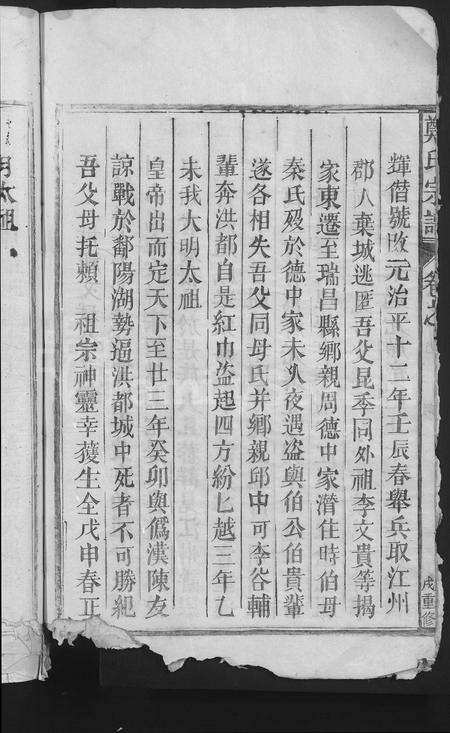 鄭氏宗譜
卷
戌重修
輝僣號攺元治平十二年壬辰春舉兵取江州
郡人棄城逃匿吾父昆季同外祖李文貴等揭
家東遷至瑞昌縣鄉親周德中家潛住時伯母
秦氏殁於德中家未久夜遇盗與伯公伯貴輩
遂各相失吾父同母氏并鄉親邱中可李谷輔
輩奔洪都自是紅巾盗起四方紛匕越三年乙
未我大明太祖
皇帝出而定天下至廿三年癸卯與僞漢陳友
諒戰於鄱陽湖勢逼洪都城中死者不可勝紀
吾父母托賴 祖宗神靈幸獲生全戊申春正
月太祖